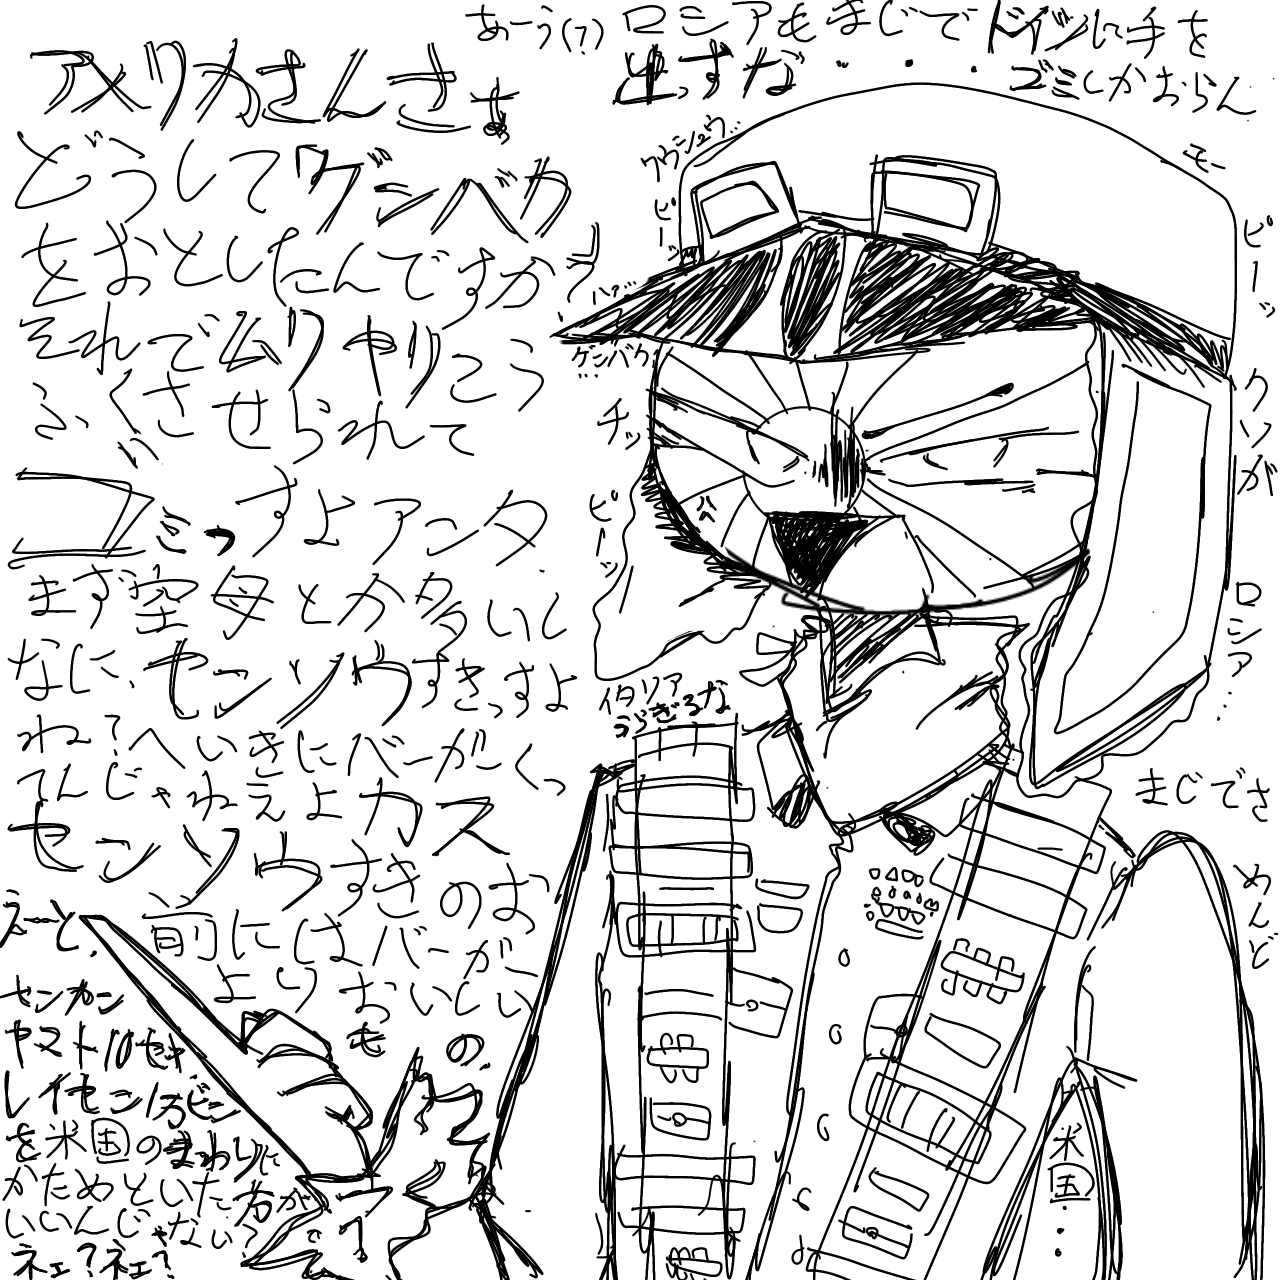 あーう(?) ロシアもまじでドイツに手を
出っすな・・・・ゴミしかおらん
アメリカさんさぁ
どうしてゲンバク
をおとしたんですか?
それでムリやりこう
ふくさせられて
ゴミっすよアンタ
まず空母とか多いし
なに、センソウすきっすよ
ね?へいきにバーガーくっ
てんじゃねえよカス
センソウすきのお
前にはバーガー
よりおいしい
もの
えーと、
センカン
ヤマト10セキ
レイセン1万ビン
を米国のまわりに
かためといた方が
いいんじゃない?
ネェ?ネェ?
クウシュウ…
ピーッ
ハァ?
ゲンバク…
チッ
ピーッ
イタリア
うらぎるな
モー
ピーッ
クソが
ロシア…
まじでさ
めんど
米国…